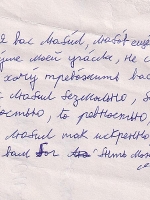 я вас любил, любовь ещё
душе моей угасла, не с
хочу тревожить вас
любил безмолвно, б
остью, то ревностью
любил так искренно
вам Бог быть